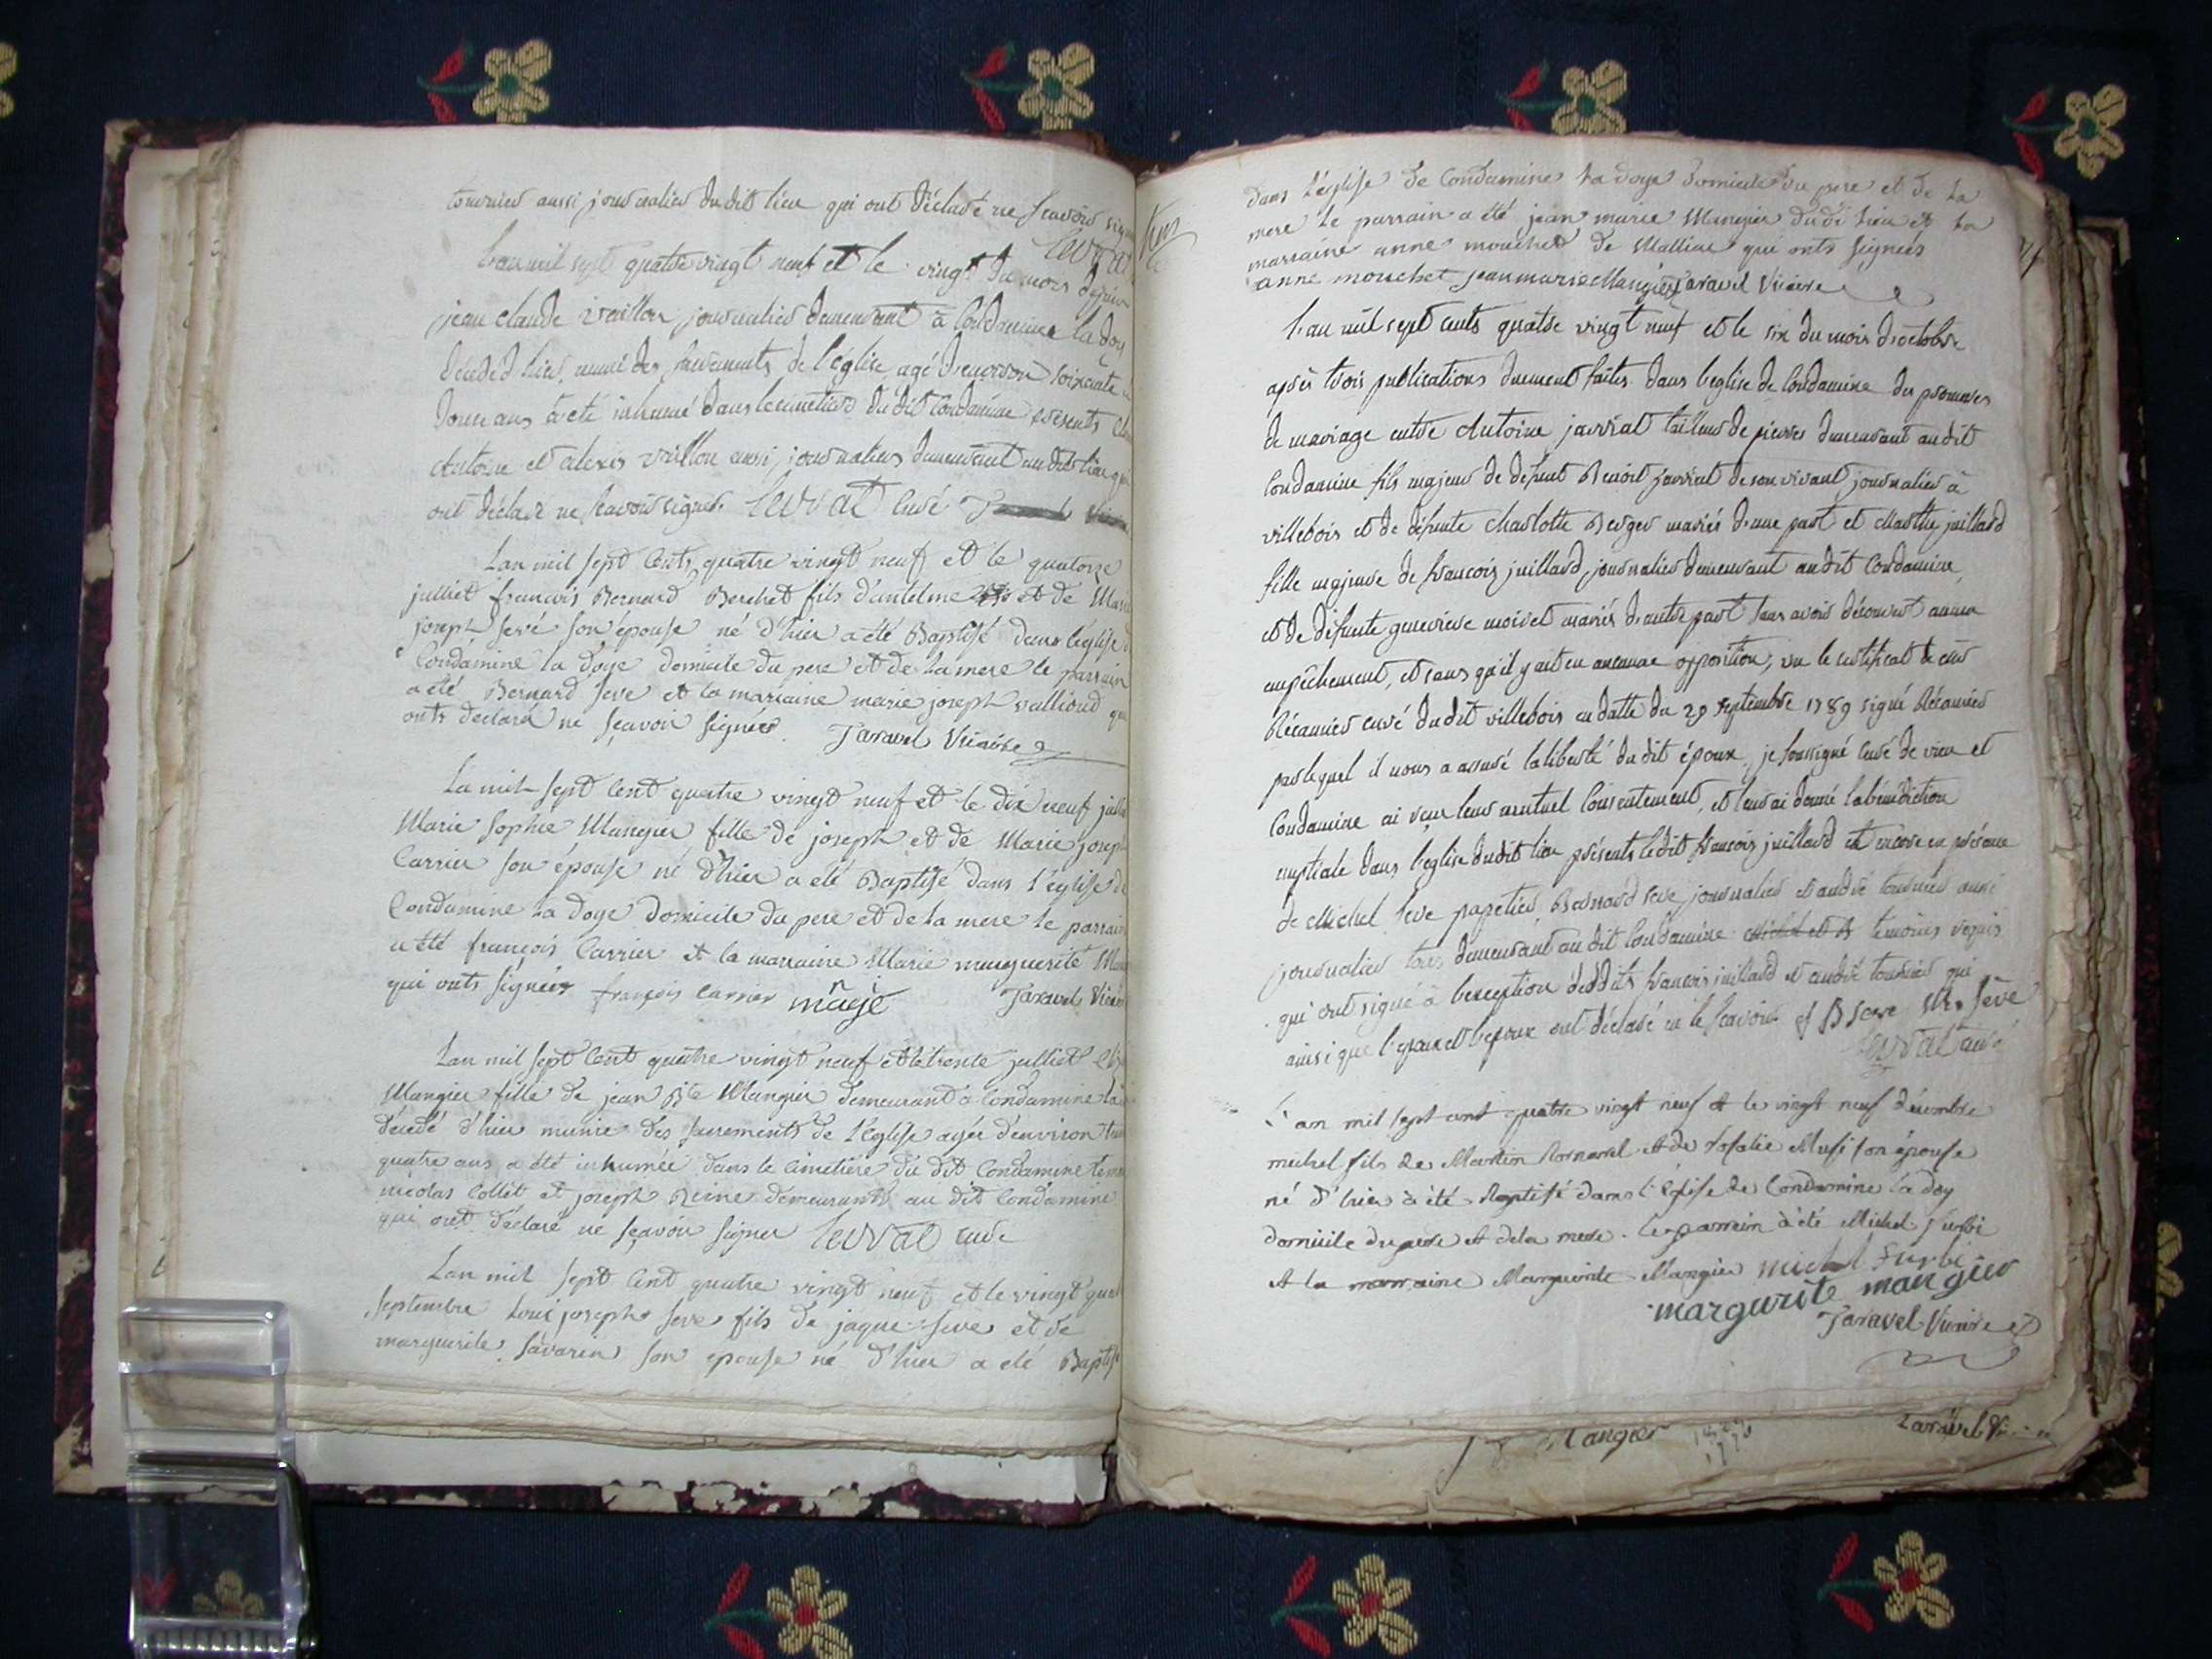 tournier aussi journalier du dit lieu qui ont déclaré ne scavoir
levrat
L'an mil sept quatre vingt neuf et le vingt du mois de juin
jean claude vaillon journalier demeurant à Condamine la doy
décédé hier, muni des sacrements de l'église agé d'environ soixante
douze ans a été inhumé dans le cimetiere du dit Condamine présents
Antoine et alexis vaillon aussi journaliers demeurant au dit lieu qui
ont déclaré ne scavoir signer. levrat curé
Lan mil sept Cents quatre vingt neuf et le quatorze
julliet francois Bernard Berchet fils d'antelme et de Marie
joseph seve son épouse né d'hier a été Baptisé dans léglise
Condamine la doye domicile du pere et de la mere le parrain
a été Bernard seve et la marraine marie joseph vallioud qui
onts declaré ne sçavoir signér. Taravel Vicaire
La mil sept Cent quatre vingt neuf et le dix neuf julliet
Marie sophie Mangier fille de joseph et de Marie joseph
Carrier son épouse né d'hier a été Baptisé dans l'église de
Condamine La doye Domicile du pere et de la mere le parrain
a été françois Carrier et la marraine Marie marguerite
qui onts signéer françois carrier Taravel Vicaire
Lan mil sept Cent quatre vingt neuf et le trente julliet
Mangier fille de jean Bte Mangier demeurant a Condamine
décédé d'hier munie des sacrements de l'église agée d'environ
quatre ans a été inhumée dans le Cimetiere du dit Condamine
nicolas Collet et joseph Reine demeurants au dit Condamine
qui ont déclaré ne sçavoir signer levrat curé
Lan mil sept Cent quatre vingt neuf et le vingt
septembre Loui joseph seve fils de jaque seve et de
marguerite savarin son epouse né d'hier a eté Baptisé
dans l'église de Condamine La doye domicile du pere et de La
mere Le parrain a été jean marie Mangier du di Lieu et La
marraine anne mouchet de Malliac qui onts signées
anne mouchet jean marie Mangier Taravel Vicaire
L'an mil sept cents quatre vingt neuf et le six du mois d'octobre
après trois publications duement faites dans l'eglise de Condamine des promesses
de mariage entre Antoine jarriat tailleur de pierres demeurant au dit
Condamine fils majeur de défunt Benoit jarriat de son vivant journalier à
villebois et de défunte charlotte Berger mariés d'une part et Marthe juillard
fille majeure de francois juillard, journalier demeurant au dit Condamine,
et de défunte genevieve moivet mariés d'autre part sans avoir découvert aucun
empêchement, et sans qu'il y ait eu aucune opposition, vu le certificat de
Récamier curé du dit villebois en datte du 29 septembre 1789 signé Récamier
par lequel il nous a assuré la liberté du dit époux, je soussigné curé de vieu et
Condamine ai reçu leur mutuel consentement, et leur ai donné la bénédiction
nuptiale dans l'eglise du dit lieu présents le dit francois juillard et encore en présence
de Michel seve papetier, Bernard seve journalier et andré tournier aussi
journalier tous demeurant au dit Condamine temoins requis
qui ont signé à l'exception desdits francois juillard et andré tournier qui
ainsi que l'epoux et l'epouse ont déclaré ne le scavoir B seve Seve
levrat curé
L'an mil sept cent quatre vingt neuf et le vingt neuf décembre
michel fils de Martin et de rosalie son épouse
né d'hier à été Baptisé dans l'église de Condamine La doy
domicile du pere et de la mere. le parrain à été Michel
et la marraine Marguerite Mangier michel
margurite mangier
Taravel Vicaire
Mangier
Taravel